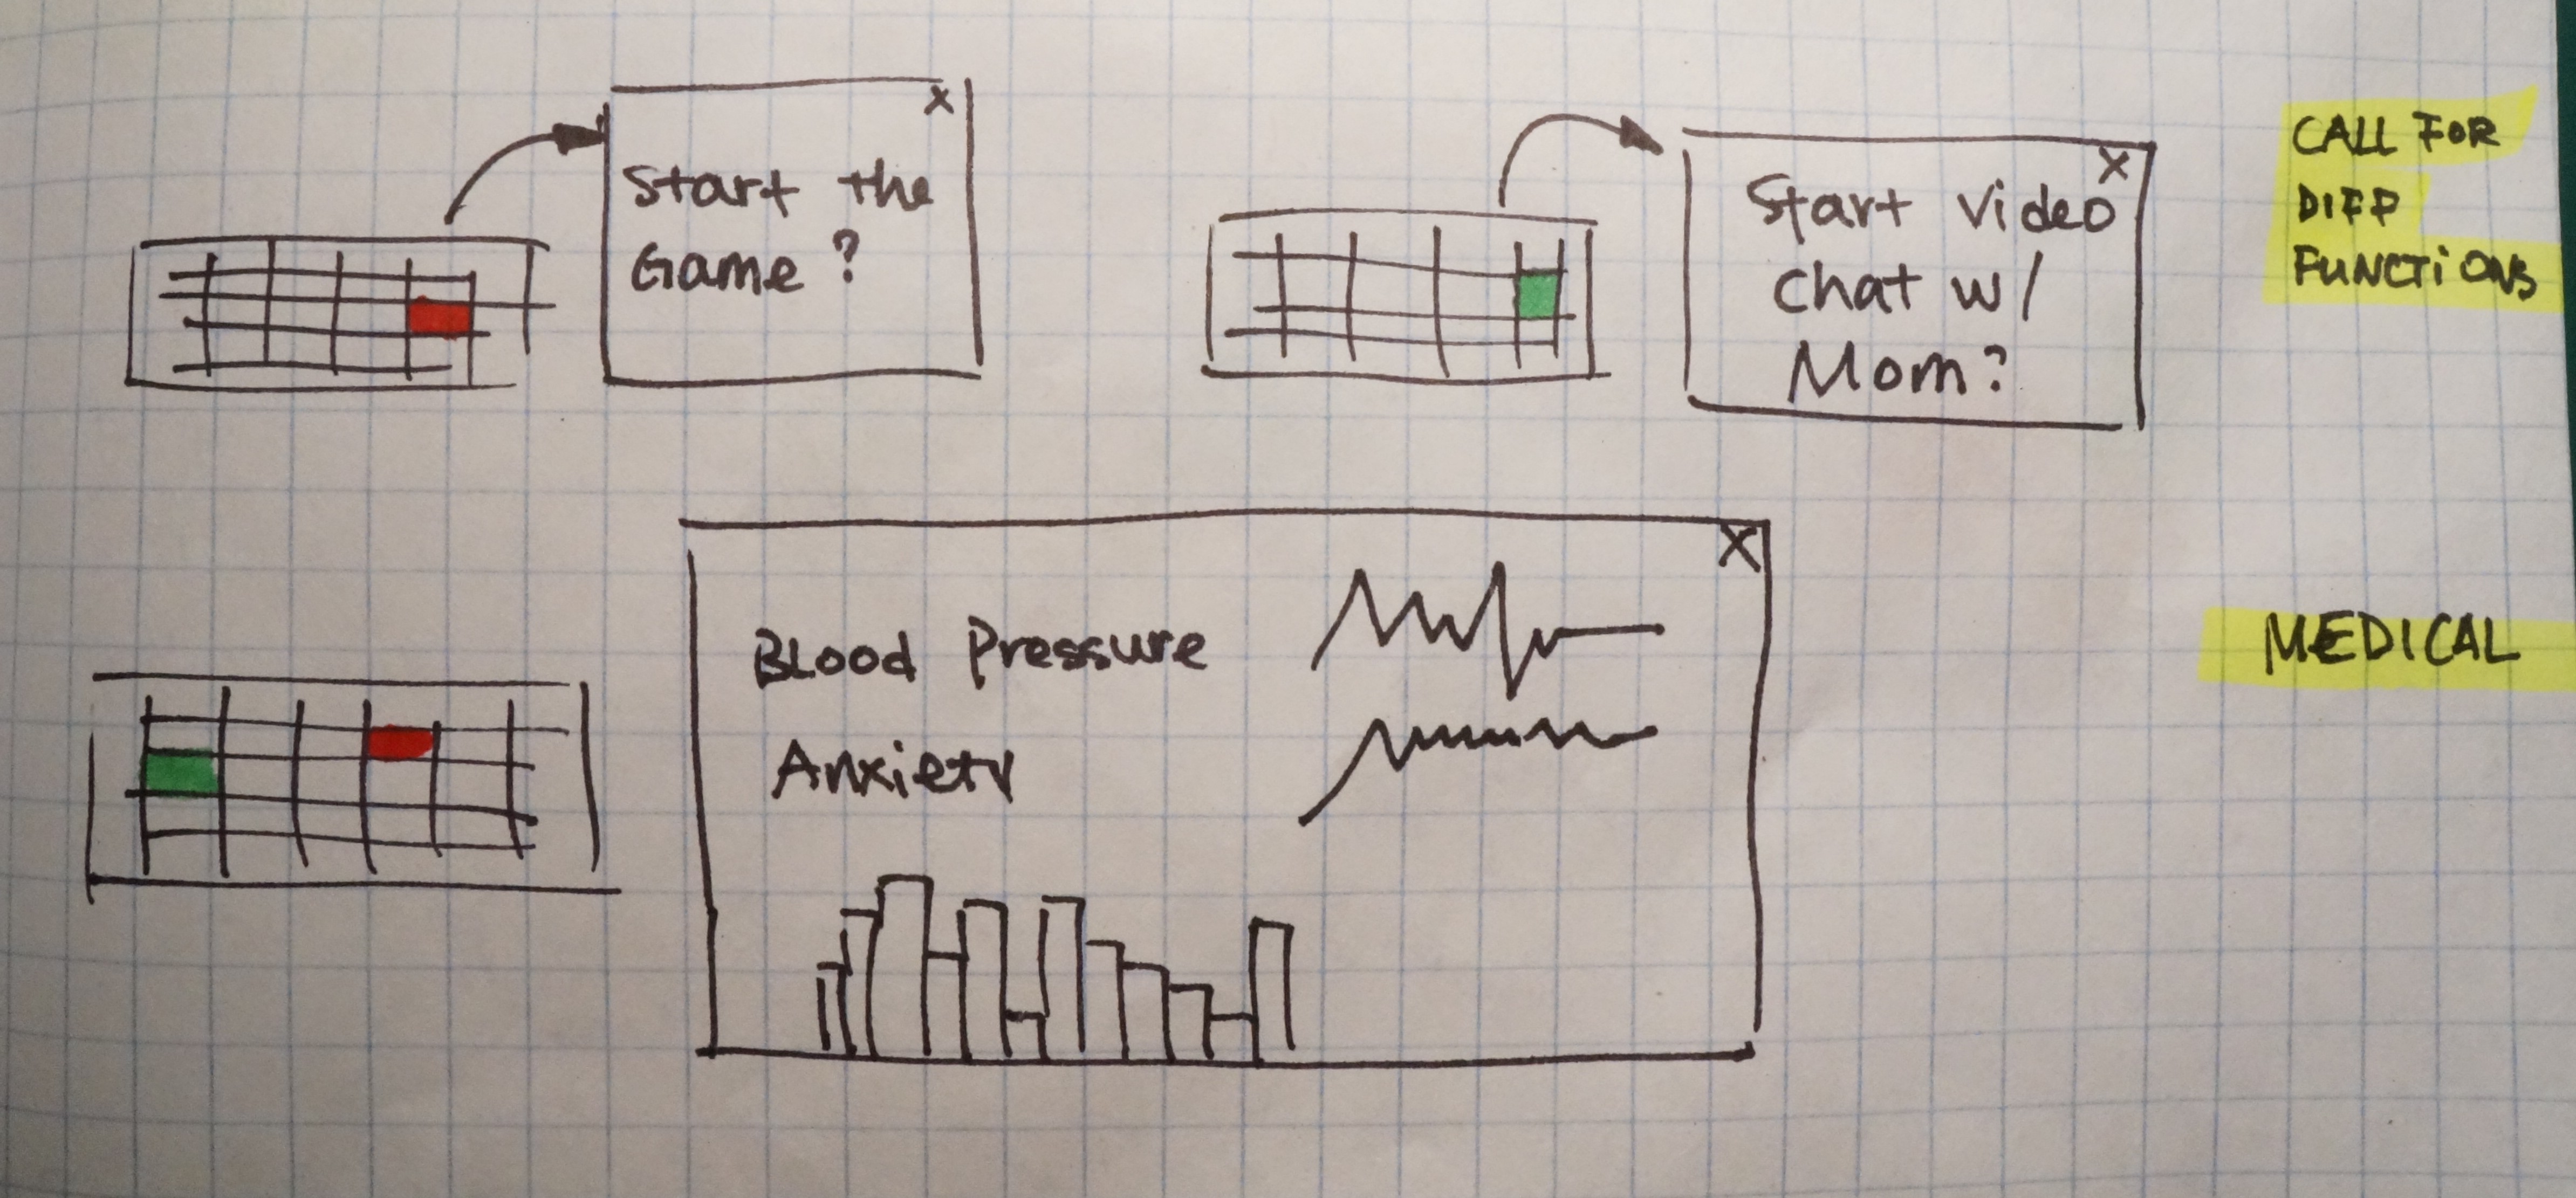 x
Start the
Game?
x
Start video
chat w/
Mom?
CALL FOR
DIFF
FUNCTiONS
X
Blood Pressure
Anxiety
MEDICAL